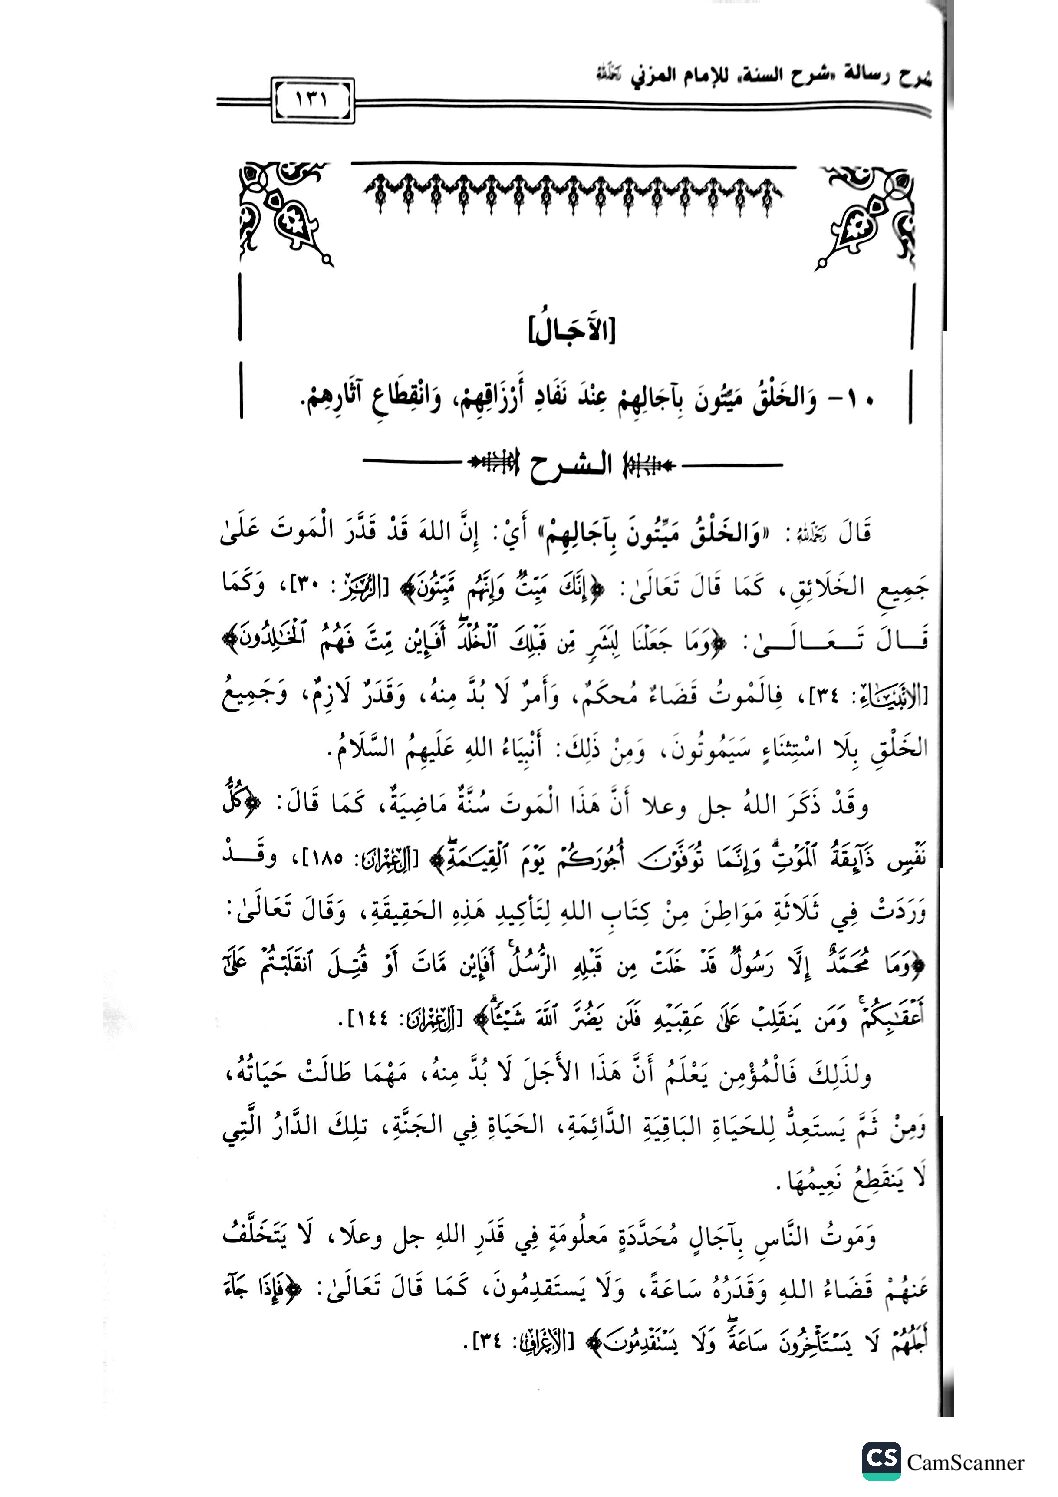 شرح رسالة «شرح السنة» للإمام المزني رَحِمَهُ اللَّهُ
١٣١
[الآجَالُ]
١٠- وَالخَلْقُ مَيِّتُونَ بِآجَالِهِمْ عِنْدَ نَفَادِ أَرْزَاقِهِمْ، وَانْقِطَاعِ آثَارِهِمْ.
الشرح
قَالَ رَحِمَهُ اللَّهُ: «وَالخَلْقُ مَيِّتُونَ بِآجَالِهِمْ» أَيْ: إِنَّ اللهَ قَدْ قَدَّرَ الْمَوتَ عَلَىٰ
جَمِيعِ الخَلَائِقِ، كَمَا قَالَ تَعَالَىٰ: ﴿إِنَّكَ مَيِّتٌ وَإِنَّهُم مَّيِّتُونَ﴾ [الزُّمَر: ٣٠]، وَكَمَا
قَـــالَ تَـــعَـــالَـــىٰ: ﴿وَمَا جَعَلْنَا لِبَشَرٍ مِّن قَبْلِكَ ٱلْخُلْدَۖ أَفَإِيْن مِّتَّ فَهُمُ ٱلْخَٰلِدُونَ﴾
[الأنبيَاء: ٣٤]، فِالَموْتُ قَضَاءٌ مُحكَمٌ، وَأَمرٌ لَا بُدَّ مِنهُ، وَقَدَرٌ لَازِمٌ، وَجَمِيعُ
الخَلْقِ بِلَا اسْتِثنَاءٍ سَيَمُوتُونَ، وَمِنْ ذَلِكَ: أَنْبِيَاءُ اللهِ عَلَيهِمُ السَّلَامُ.
وقَدْ ذَكَرَ اللهُ جل وعلا أَنَّ هَذَا الْمَوتَ سُنَّةٌ مَاضِيَةٌ، كَمَا قَالَ: ﴿كُلُّ
نَفْسٍ ذَآئِقَةُ ٱلْمَوْتِۗ وَإِنَّمَا تُوَفَّوْنَ أُجُورَكُمْ يَوْمَ ٱلْقِيَٰمَةِۖ﴾ [آل عِمرَان: ١٨٥]، وقَـــدْ
وَرَدَتْ فِي ثَلَاثَةِ مَوَاطِنَ مِنْ كِتَابِ اللهِ لِتَأكِيدِ هَذِهِ الحَقِيقَةِ، وَقَالَ تَعَالَىٰ:
﴿وَمَا مُحَمَّدٌ إِلَّا رَسُولٌ قَدْ خَلَتْ مِن قَبْلِهِ ٱلرُّسُلُۚ أَفَإِيْن مَّاتَ أَوْ قُتِلَ ٱنقَلَبْتُمْ عَلَىٰٓ
أَعْقَٰبِكُمْۚ وَمَن يَنقَلِبْ عَلَىٰ عَقِبَيْهِ فَلَن يَضُرَّ ٱللَّهَ شَيْـًٔاۗ﴾ [آل عِمرَان: ١٤٤].
ولذَلِكَ فَالْمُؤْمِن يَعْلَمُ أَنَّ هَذَا الأَجَلَ لَا بُدَّ مِنهُ، مَهْمَا طَالَتْ حَيَاتُهُ،
وَمِنْ ثَمَّ يَستَعِدُّ لِلحَيَاةِ البَاقِيَةِ الدَّائِمَةِ، الحَيَاةِ فِي الجَنَّةِ، تلِكَ الدَّارُ الَّتِي
لَا يَنقَطِعُ نَعِيمُهَا.
وَمَوتُ النَّاسِ بِآجَالٍ مُحَدَّدَةٍ مَعلُومَةٍ فِي قَدَرِ اللهِ جل وعلَا، لَا يَتَخَلَّفُ
عَنهُمْ قَضَاءُ اللهِ وَقَدَرُهُ سَاعَةً، وَلَا يَستَقدِمُونَ، كَمَا قَالَ تَعَالَىٰ: ﴿فَإِذَا جَآءَ
أَجَلُهُمْ لَا يَسْتَأْخِرُونَ سَاعَةًۖ وَلَا يَسْتَقْدِمُونَ﴾ [الأعرَاف: ٣٤].
CS CamScanner